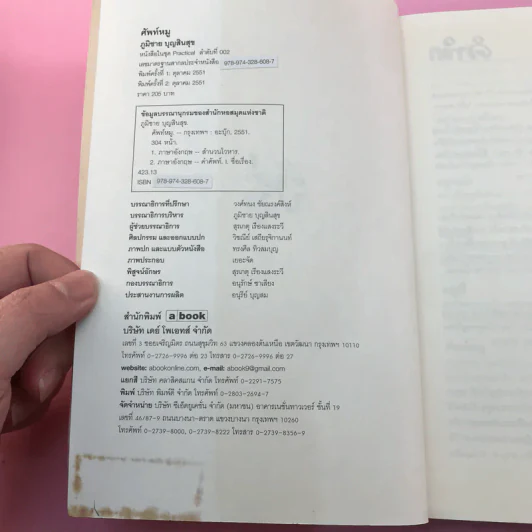 ศัพท์หมู
ภูมิชาย บุญสินสุข
หนังสือในชุด Practical ลำดับที่ 002
เลขมาตรฐานสากลประจำหนังสือ 978-974-328-608-7
พิมพ์ครั้งที่ 1: ตุลาคม 2551
พิมพ์ครั้งที่ 2: ตุลาคม 2551
ราคา 205 บาท
ข้อมูลบรรณานุกรมของสำนักหอสมุดแห่งชาติ
ภูมิชาย บุญสินสุข.
ศัพท์หมู. -- กรุงเทพฯ : อะบุ๊ก, 2551.
304 หน้า.
1. ภาษาอังกฤษ -- สำนวนโวหาร.
2. ภาษาอังกฤษ -- คำศัพท์. I. ชื่อเรื่อง.
423.13
ISBN 978-974-328-608-7
บรรณาธิการที่ปรึกษา วงศ์ทนง ชัยณรงค์สิงห์
บรรณาธิการบริหาร ภูมิชาย บุญสินสุข
ผู้ช่วยบรรณาธิการ สุรเกตุ เรืองแสงระวี
ศิลปกรรม และออกแบบปก
ภาพปก และแบบตัวหนังสือ ทรงศีล ทิวสมบุญ
ภาพประกอบ เยอะจัด
พิสูจน์อักษร สุรเกตุ เรืองแสงระวี
กองบรรณาธิการ อนุรักษ์ ชาเลียง
ประสานงานการผลิต อนุรีย์ บุญสม
สำนักพิมพ์ a book
บริษัท เดย์ โพเอทส์ จำกัด
เลขที่ 3 ซอยเจริญมิตร ถนนสุขุมวิท 63 แขวงคลองตันเหนือ เขตวัฒนา กรุงเทพฯ 10110
โทรศัพท์ 0-2726-9996 ต่อ 23 โทรสาร 0-2726-9996 ต่อ 27
website: abookonline.com, e-mail: abook9@gmail.com
แยกสี บริษัท คลาสิคสแกน จำกัด โทรศัพท์ 0-2291-7575
พิมพ์ บริษัท พิมพ์ดี จำกัด โทรศัพท์ 0-2803-2694-7
จัดจำหน่าย บริษัท ซีเอ็ดยูเคชั่น จำกัด (มหาชน) อาคารเนชั่นทาวเวอร์ ชั้นที่ 19
เลขที่ 46/87-9 ถนนบางนา-ตราด แขวงบางนา กรุงเทพฯ 10260
โทรศัพท์ 0-2739-8000, 0-2739-8222 โทรสาร 0-2739-8356-9